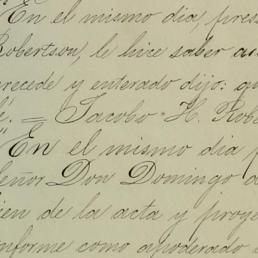 En el mismo dia, pres
Robertson, le hice saber
precede y enterado dijo: qu
fé. = Jacobo H. Robe
"En el mismo dia
Señor Don Domingo
bien de la acta y proye
nforme como apoderado